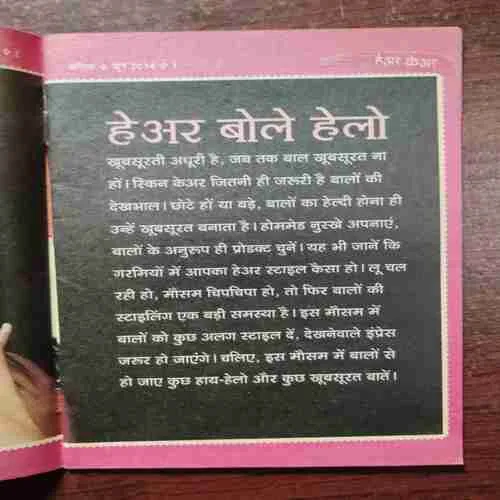 जून २०१४
हेअर केअर
हेअर बोले हेलो
खूबसूरती अधूरी है, जब तक बाल खूबसूरत ना
हों। स्किन केअर जितनी ही जरूरी है बालों की
देखभाल। छोटे हों या बड़े, बालों का हेल्दी होना ही
उन्हें खूबसूरत बनाता है। होममेड नुस्खे अपनाएं,
बालों के अनुरूप ही प्रोडक्ट चुनें। यह भी जानें कि
गरमियों में आपका हेअर स्टाइल कैसा हो। लू चल
रही हो, मौसम चिपचिपा हो, तो फिर बालों की
स्टाइलिंग एक बड़ी समस्या है। इस मौसम में
बालों को कुछ अलग स्टाइल दें, देखनेवाले इंप्रेस
जरूर हो जाएंगे। चलिए, इस मौसम में बालों से
हो जाए कुछ हाय-हेलो और कुछ खूबसूरत बातें।